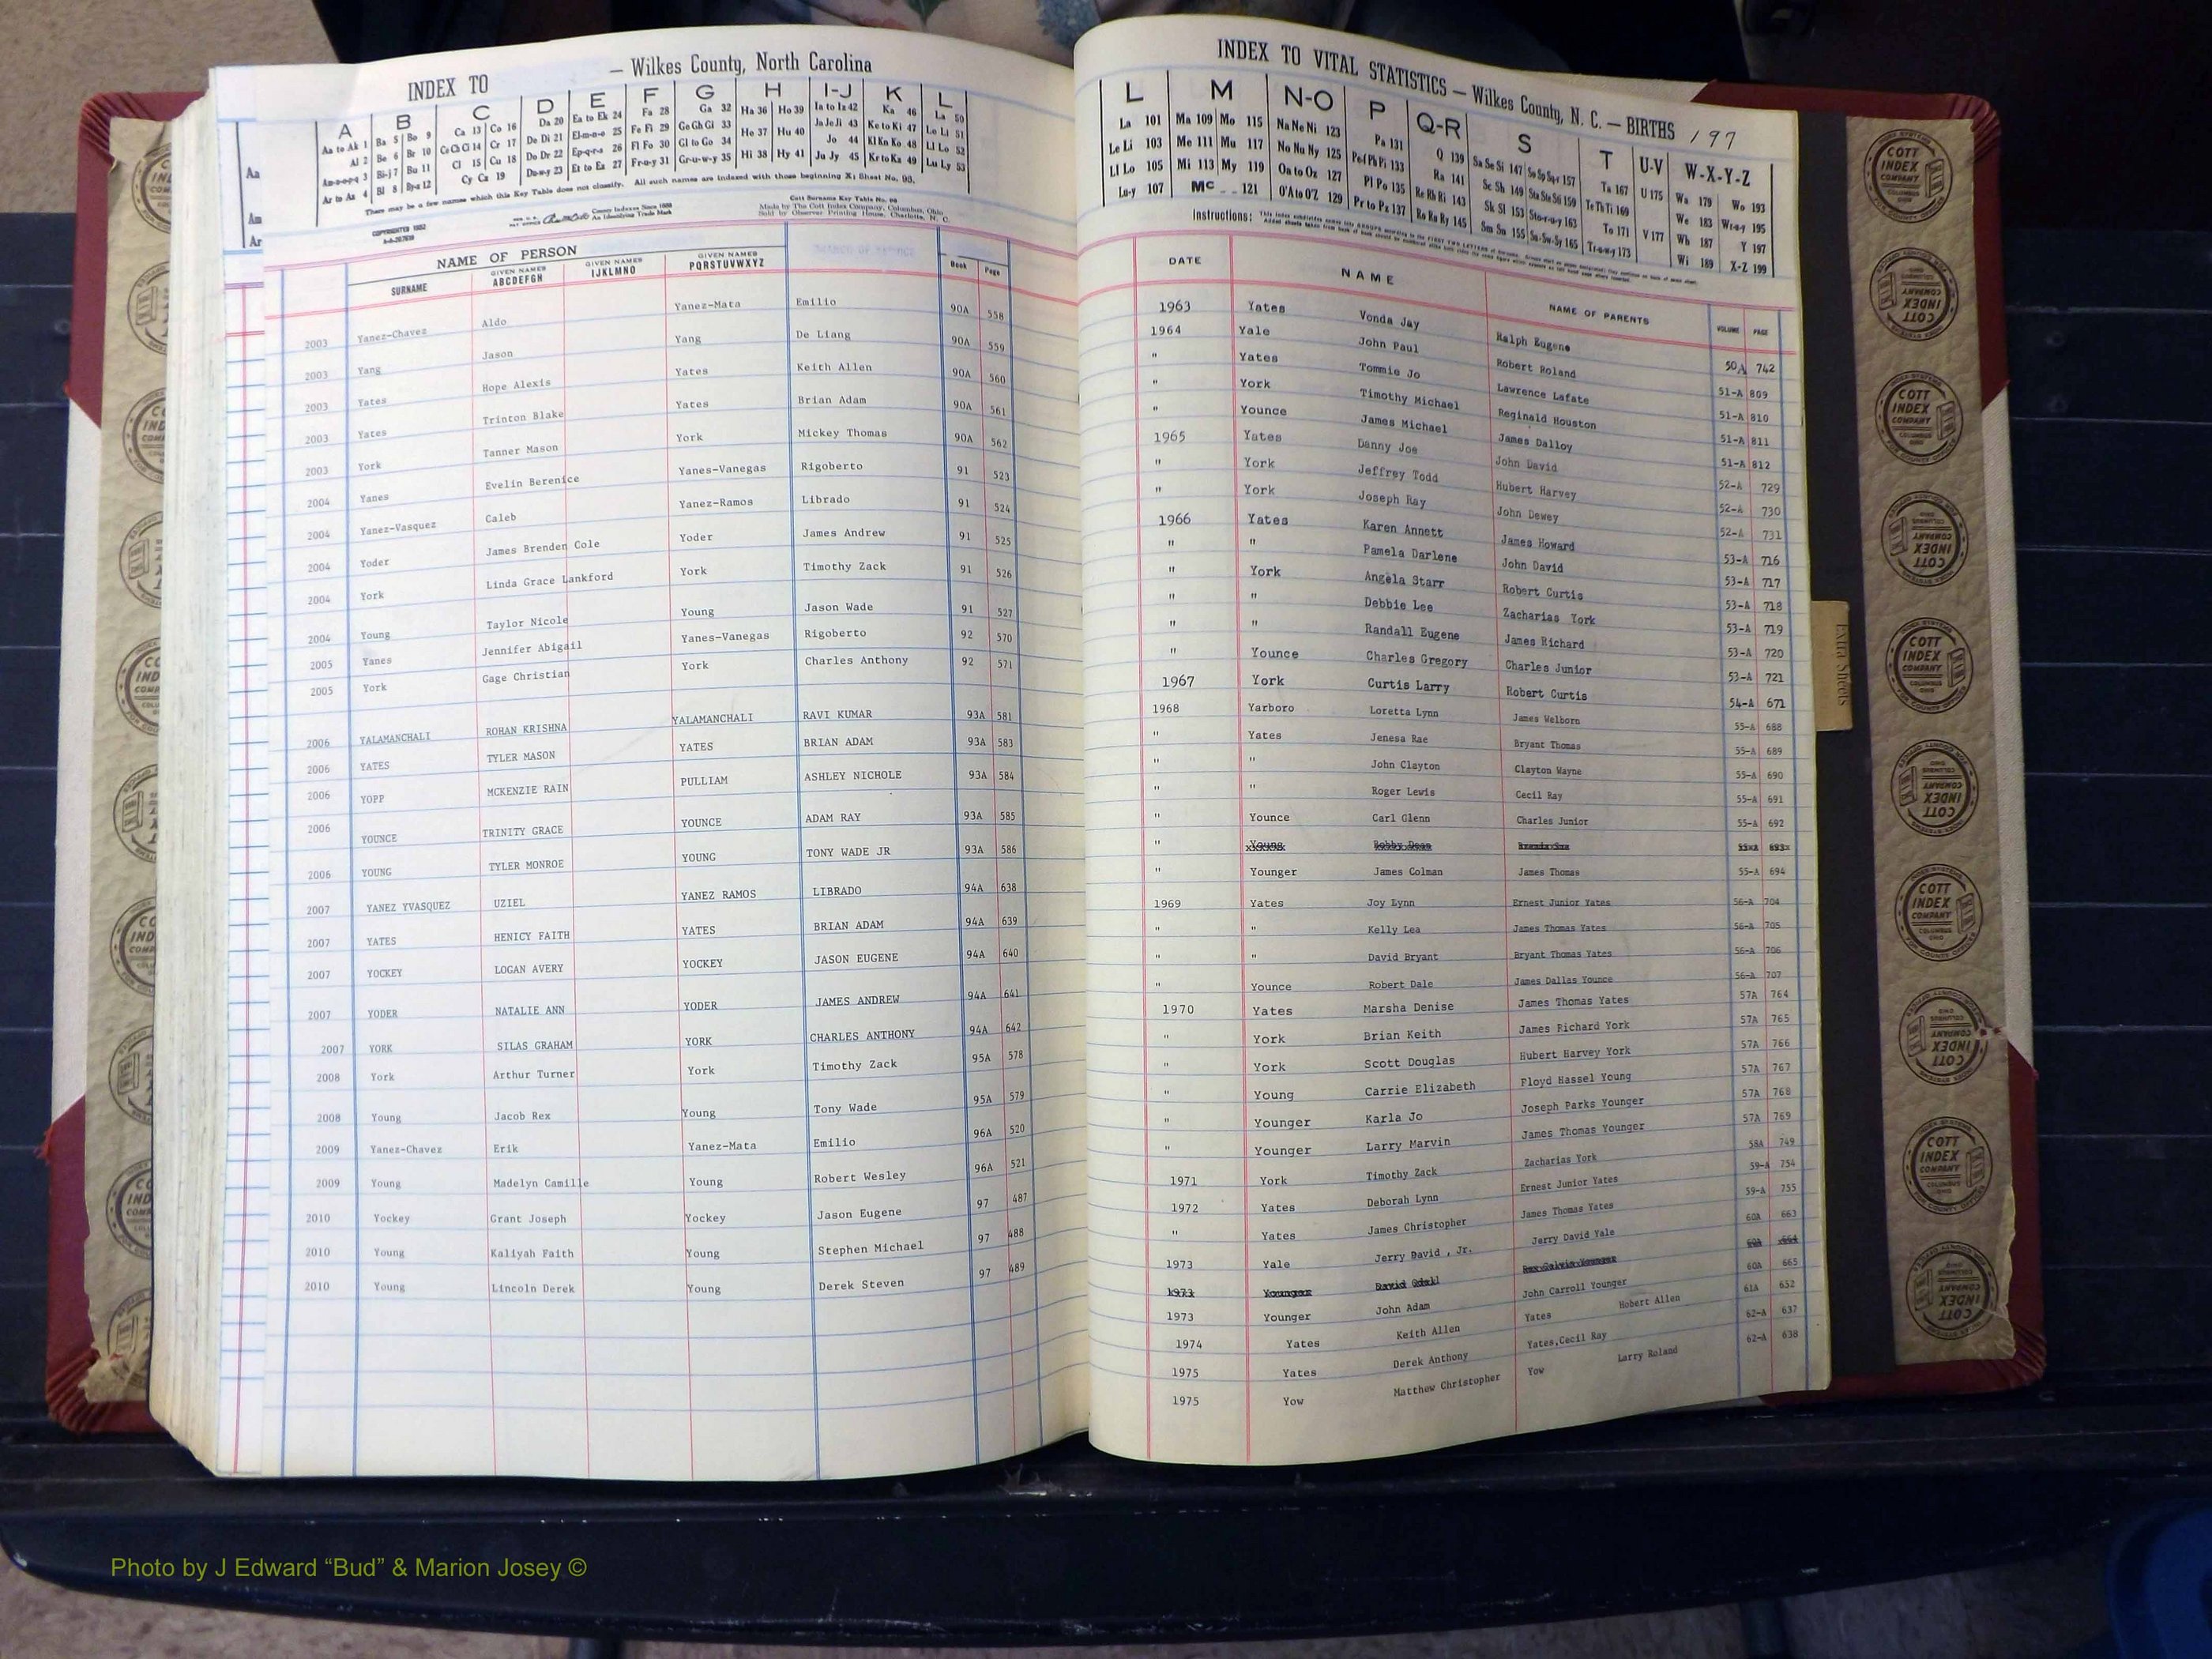 INDEX TO — Wilkes County, North Carolina
A B C D E F G H I-J K L
Aa to Ak 1 Ba 5 Bo 9 Ca 13 Co 16 Da 20 Ea to Ek 24 Fa 28 Ga 32 Ha 36 Ho 39 Ia to Iz 42 Ka 46 La 50
Al 2 Be 6 Br 10 Ce Ch Ci 14 Cr 17 De Di 21 El-m-n-o 25 Fe Fi 29 Ge Gh Gi 33 He 37 Hu 40 Ja Je Ji 43 Ke to Ki 47 Le Li 51
Am-n-o-p-q 3 Bi-j 7 Bu 11 Cl 15 Cu 18 Do Dr 22 Ep-q-r-s 26 Fl Fo 30 Gl to Go 34 Hi 38 Hy 41 Jo 44 Kl Kn Ko 48 Ll Lo 52
Ar to Az 4 Bl 8 By-z 12 Cy Cz 19 Du-w-y 23 Et to Ez 27 Fr-u-y 31 Gr-u-w-y 35 Ju Jy 45 Kr to Kz 49 Lu Ly 53
There may be a few names which this Key Table does not classify. All such names are indexed with those beginning X: Sheet No. 93.
COPYRIGHTED 1952
County Indexes Since 1888
An Identifying Trade Mark
Made by The Cott Index Company, Columbus, Ohio
Sold by Observer Printing House, Charlotte, N. C.
Aa
Am
Ar
NAME OF PERSON
SURNAME GIVEN NAMES ABCDEFGH GIVEN NAMES IJKLMNO GIVEN NAMES PQRSTUVWXYZ Book Page
2003 Yanez-Chavez Aldo Yanez-Mata Emilio 90A 558
2003 Yang Jason Yang De Liang 90A 559
2003 Yates Hope Alexis Yates Keith Allen 90A 560
2003 Yates Trinton Blake Yates Brian Adam 90A 561
2003 York Tanner Mason York Mickey Thomas 90A 562
2004 Yanes Evelin Berenice Yanes-Vanegas Rigoberto 91 523
2004 Yanez-Vasquez Caleb Yanez-Ramos Librado 91 524
2004 Yoder James Brenden Cole Yoder James Andrew 91 525
2004 York Linda Grace Lankford York Timothy Zack 91 526
2004 Young Taylor Nicole Young Jason Wade 91 527
2005 Yanes Jennifer Abigail Yanes-Vanegas Rigoberto 92 570
2005 York Gage Christian York Charles Anthony 92 571
2006 YALAMANCHALI ROHAN KRISHNA YALAMANCHALI RAVI KUMAR 93A 581
2006 YATES TYLER MASON YATES BRIAN ADAM 93A 583
2006 YOPP MCKENZIE RAIN PULLIAM ASHLEY NICHOLE 93A 584
2006 YOUNCE TRINITY GRACE YOUNCE ADAM RAY 93A 585
2006 YOUNG TYLER MONROE YOUNG TONY WADE JR 93A 586
2007 YANEZ YVASQUEZ UZIEL YANEZ RAMOS LIBRADO 94A 638
2007 YATES HENICY FAITH YATES BRIAN ADAM 94A 639
2007 YOCKEY LOGAN AVERY YOCKEY JASON EUGENE 94A 640
2007 YODER NATALIE ANN YODER JAMES ANDREW 94A 641
2007 YORK SILAS GRAHAM YORK CHARLES ANTHONY 94A 642
2008 York Arthur Turner York Timothy Zack 95A 578
2008 Young Jacob Rex Young Tony Wade 95A 579
2009 Yanez-Chavez Erik Yanez-Mata Emilio 96A 520
2009 Young Madelyn Camille Young Robert Wesley 96A 521
2010 Yockey Grant Joseph Yockey Jason Eugene 97 487
2010 Young Kaliyah Faith Young Stephen Michael 97 488
2010 Young Lincoln Derek Young Derek Steven 97 489
INDEX TO VITAL STATISTICS — Wilkes County, N. C. — BIRTHS 197
L M N-O P Q-R S T U-V W-X-Y-Z
La 101 Ma 109 Mo 115 Na Ne Ni 123 Pa 131 Q 139 Sa Se Si 147 So Sp Sq-r 157 Ta 167 U 175 Wa 179 Wo 193
Le Li 103 Me 111 Mu 117 No Nu Ny 125 Pe-f Ph Pi 133 Ra 141 Sc Sh 149 Sta Ste Sti 159 Te Th Ti 169 We 183 Wr-u-y 195
Ll Lo 105 Mi 113 My 119 Oa to Oz 127 Pl Po 135 Re Rh Ri 143 Sk Sl 153 Sto-r-u-y 163 To 171 V 177 Wh 187 Y 197
Lu-y 107 Mc 121 O'A to O'Z 129 Pr to Pz 137 Ro Ru Ry 145 Sm Sn 155 Su-Sw-Sy 165 Tr-u-w-y 173 Wi 189 X-Z 199
Instructions:
DATE NAME NAME OF PARENTS VOLUME PAGE
1963 Yates Vonda Jay Ralph Eugene 50A 742
1964 Yale John Paul Robert Roland 51-A 809
" Yates Tommie Jo Lawrence Lafate 51-A 810
" York Timothy Michael Reginald Houston 51-A 811
" Younce James Michael James Dalloy 51-A 812
1965 Yates Danny Joe John David 52-A 729
" York Jeffrey Todd Hubert Harvey 52-A 730
" York Joseph Ray John Dewey 52-A 731
1966 Yates Karen Annett James Howard 53-A 716
" " Pamela Darlene John David 53-A 717
" York Angela Starr Robert Curtis 53-A 718
" " Debbie Lee Zacharias York 53-A 719
" " Randall Eugene James Richard 53-A 720
" Younce Charles Gregory Charles Junior 53-A 721
1967 York Curtis Larry Robert Curtis 54-A 671
1968 Yarboro Loretta Lynn James Welborn 55-A 688
" Yates Jenesa Rae Bryant Thomas 55-A 689
" " John Clayton Clayton Wayne 55-A 690
" " Roger Lewis Cecil Ray 55-A 691
" Younce Carl Glenn Charles Junior 55-A 692
" Young Bobby Dean
" Younger James Colman James Thomas 55-A 694
1969 Yates Joy Lynn Ernest Junior Yates 56-A 704
" " Kelly Lea James Thomas Yates 56-A 705
" " David Bryant Bryant Thomas Yates 56-A 706
" Younce Robert Dale James Dallas Younce 56-A 707
1970 Yates Marsha Denise James Thomas Yates 57A 764
" York Brian Keith James Richard York 57A 765
" York Scott Douglas Hubert Harvey York 57A 766
" Young Carrie Elizabeth Floyd Hassel Young 57A 767
" Younger Karla Jo Joseph Parks Younger 57A 768
" Younger Larry Marvin James Thomas Younger 57A 769
1971 York Timothy Zack Zacharias York 58A 749
1972 Yates Deborah Lynn Ernest Junior Yates 59-A 754
" Yates James Christopher James Thomas Yates 59-A 755
1973 Yale Jerry David, Jr. Jerry David Yale 60A 663
1973 Younger David 60A 664
1973 Younger John Adam John Carroll Younger 60A 665
1974 Yates Keith Allen Yates Hobert Allen 61A 652
1975 Yates Derek Anthony Yates,Cecil Ray 62-A 637
1975 Yow Matthew Christopher Yow Larry Roland 62-A 638
Extra Sheets
COTT INDEX COMPANY
COLUMBUS OHIO
Photo by J Edward “Bud” & Marion Josey ©